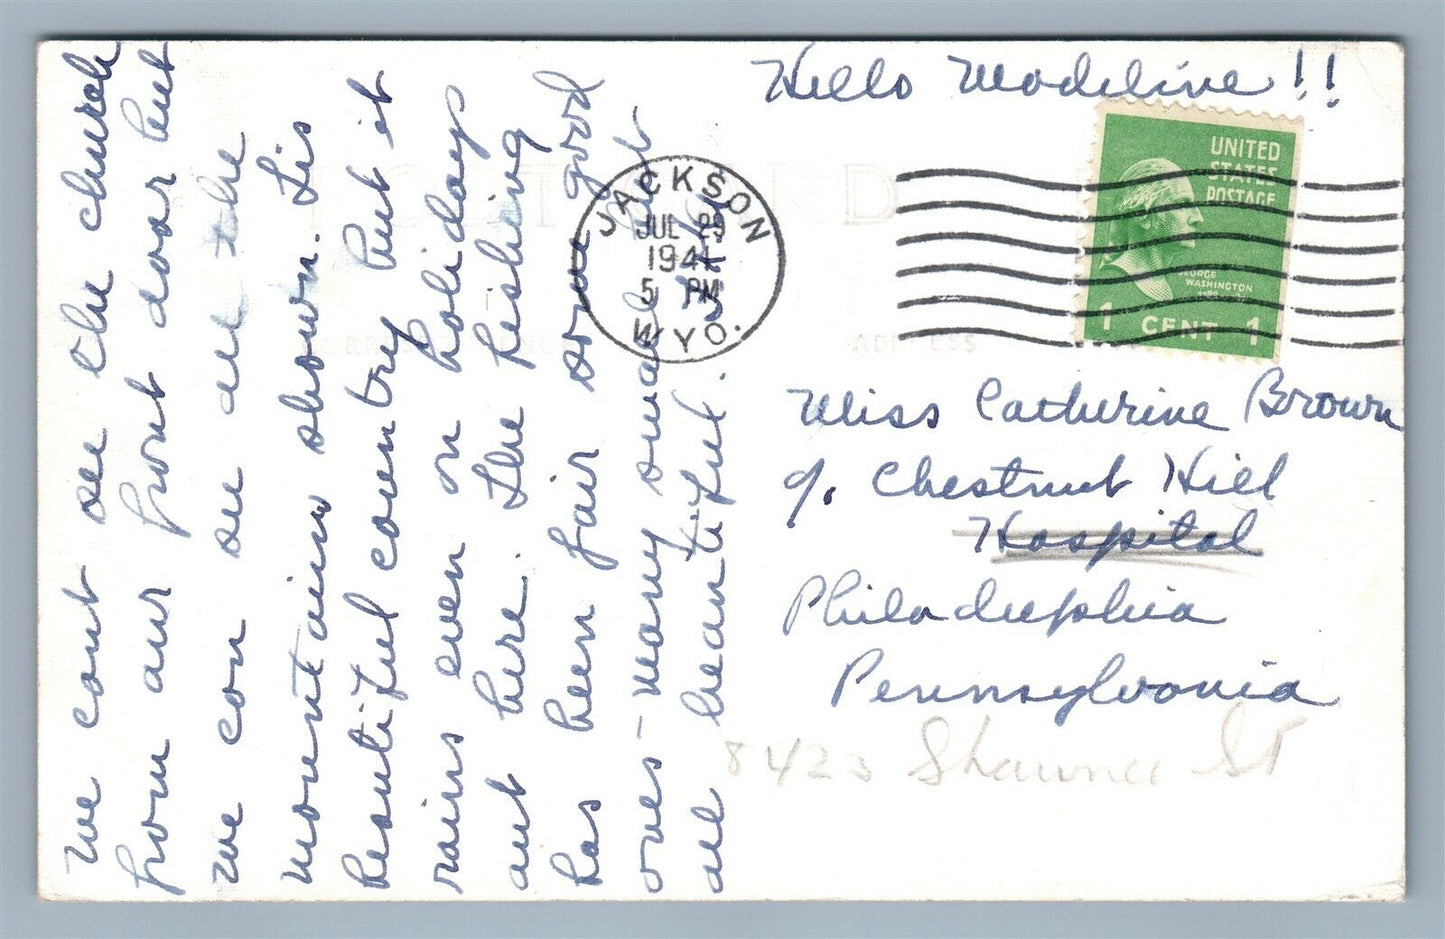 Hello Madeline!!
JACKSON
JUL 29
1941
5 PM
WYO.
UNITED
STATES
POSTAGE
GEORGE
WASHINGTON
1 CENT 1
POST CARD
CORRESPONDENCE
ADDRESS
Miss Catherine Brown
%. Chestnut Hill
Hospital
Philadelphia
Pennsylvania
8423 Shawnee St
We cant see the church
from our front door but
we can see all the
mountains shown. Tis
beautiful country but it
rains even on holidays
out here. The fishing
has been fair some good
ones - many small but
all beautiful.